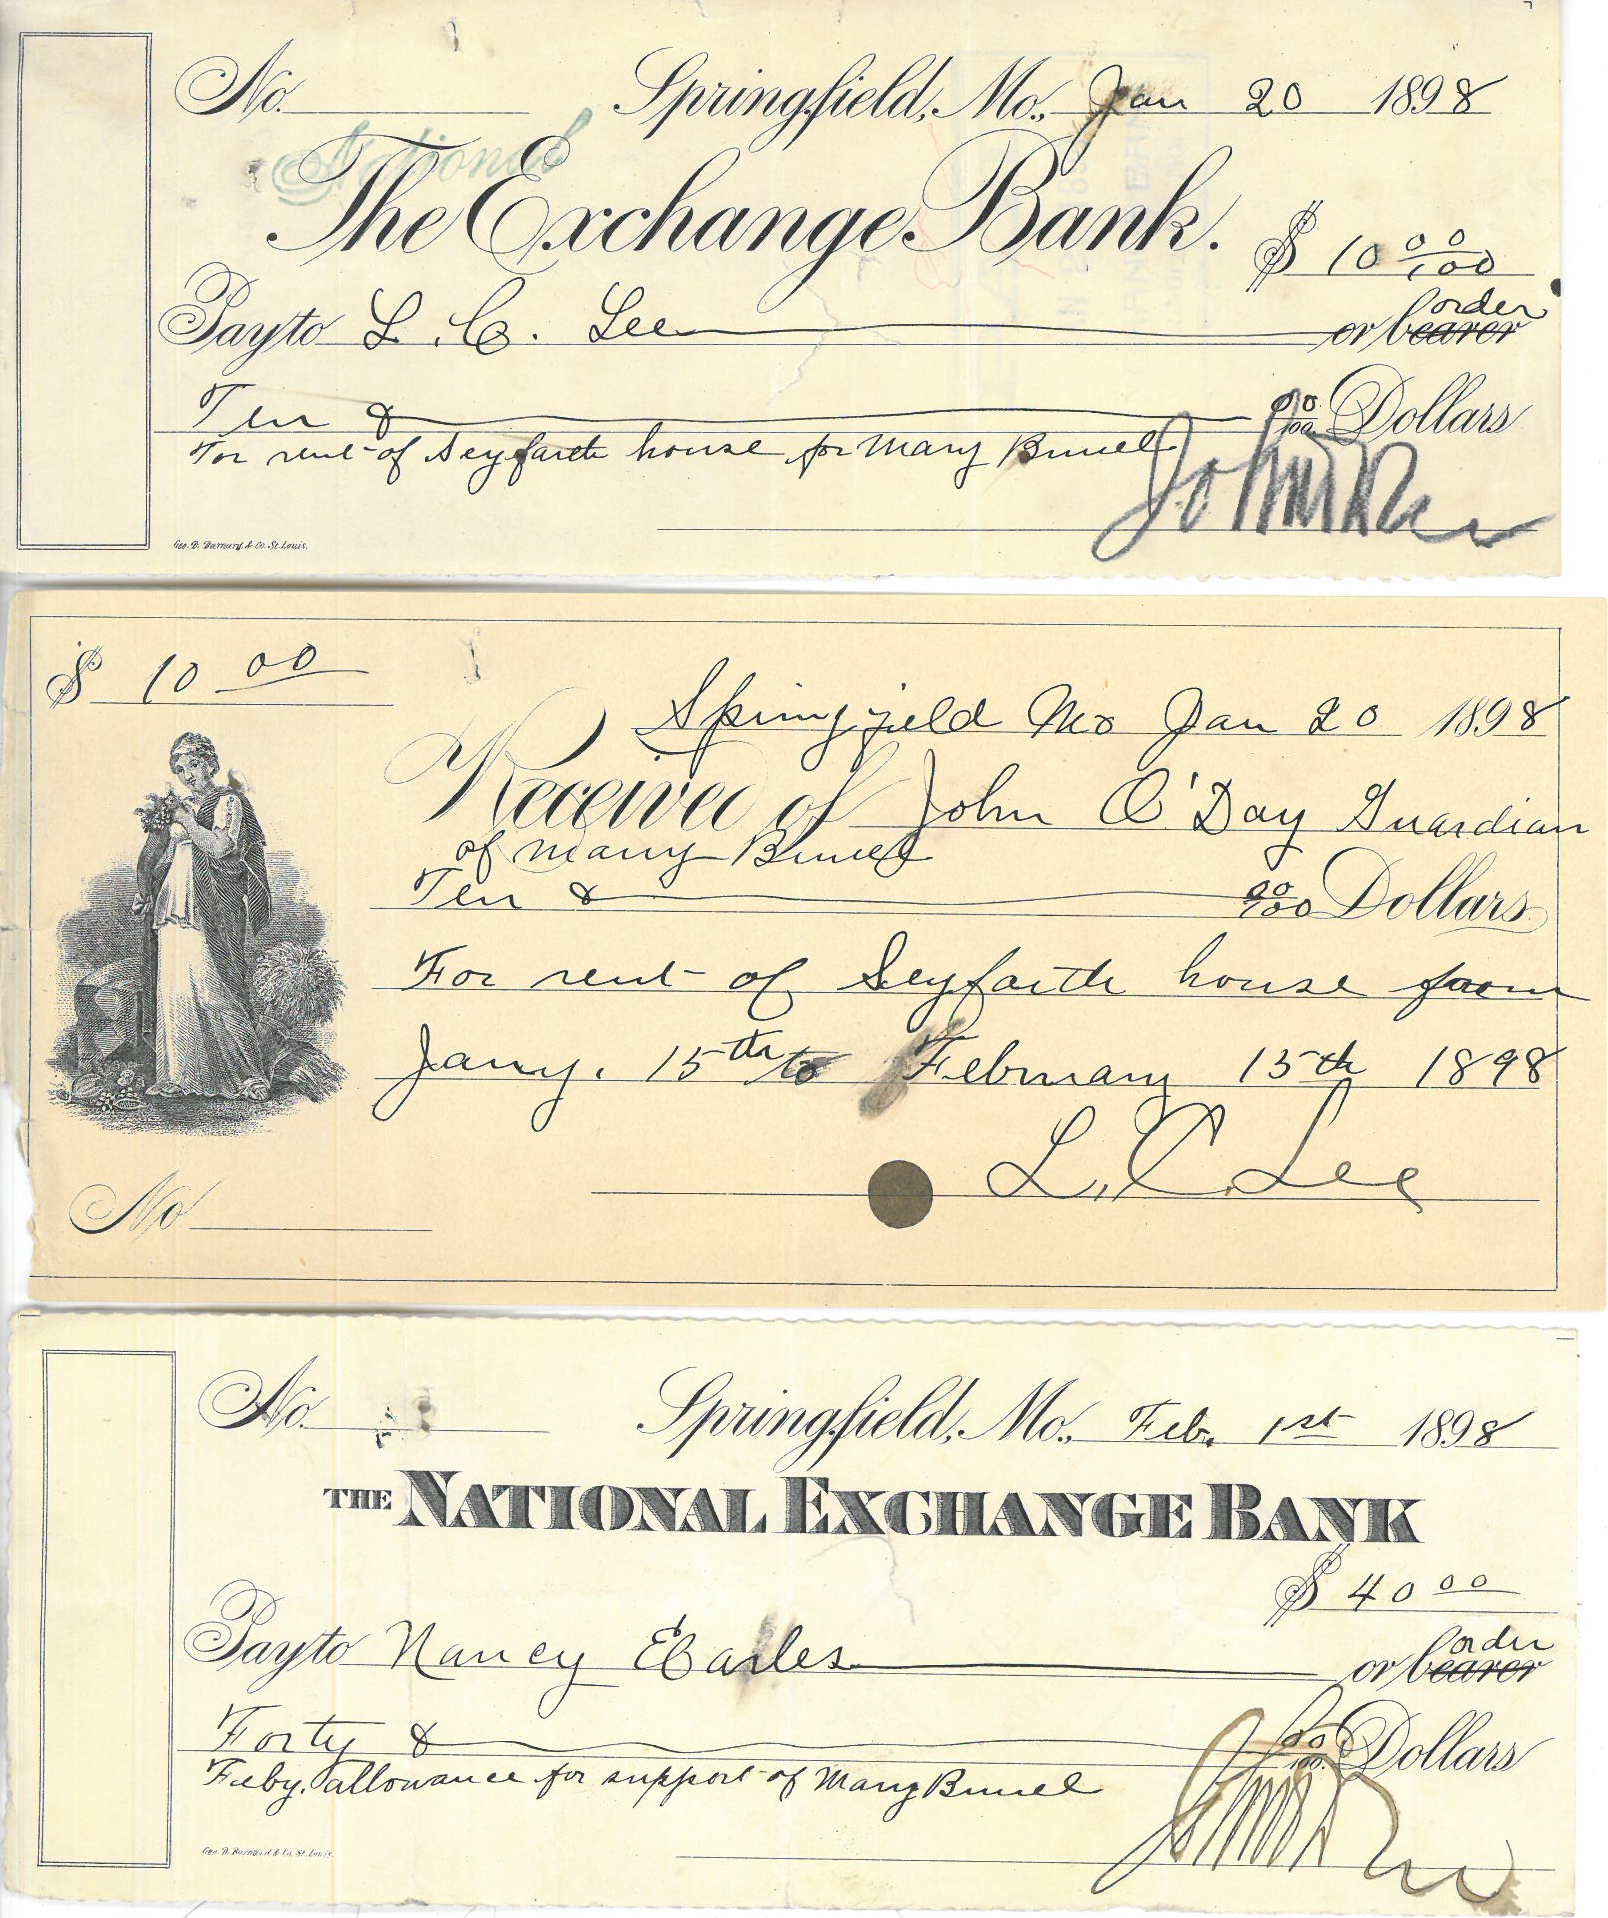 No. Springfield, Mo., Jan 20 1898
National
The Exchange Bank.
$ 10 00/100
Pay to L. C. Lee or bearer order
Ten & 00/100 Dollars
For rent of Seyfarth house for Mary
Geo. D. Barnard & Co. St. Louis.
$ 10 00
Springfield Mo Jan 20 1898
Received of John O'Day Guardian
of Mary
Ten & 00/100 Dollars
For rent of Seyfarth house from
Jany. 15th to February 15th 1898
L. C. Lee
No
No. Springfield, Mo., Feb. 1st 1898
THE NATIONAL EXCHANGE BANK
$ 40 00
Pay to Nancy Earles or bearer order
Forty & 00/100 Dollars
Feby. allowance for support of Mary
Geo. D. Barnard & Co. St. Louis.